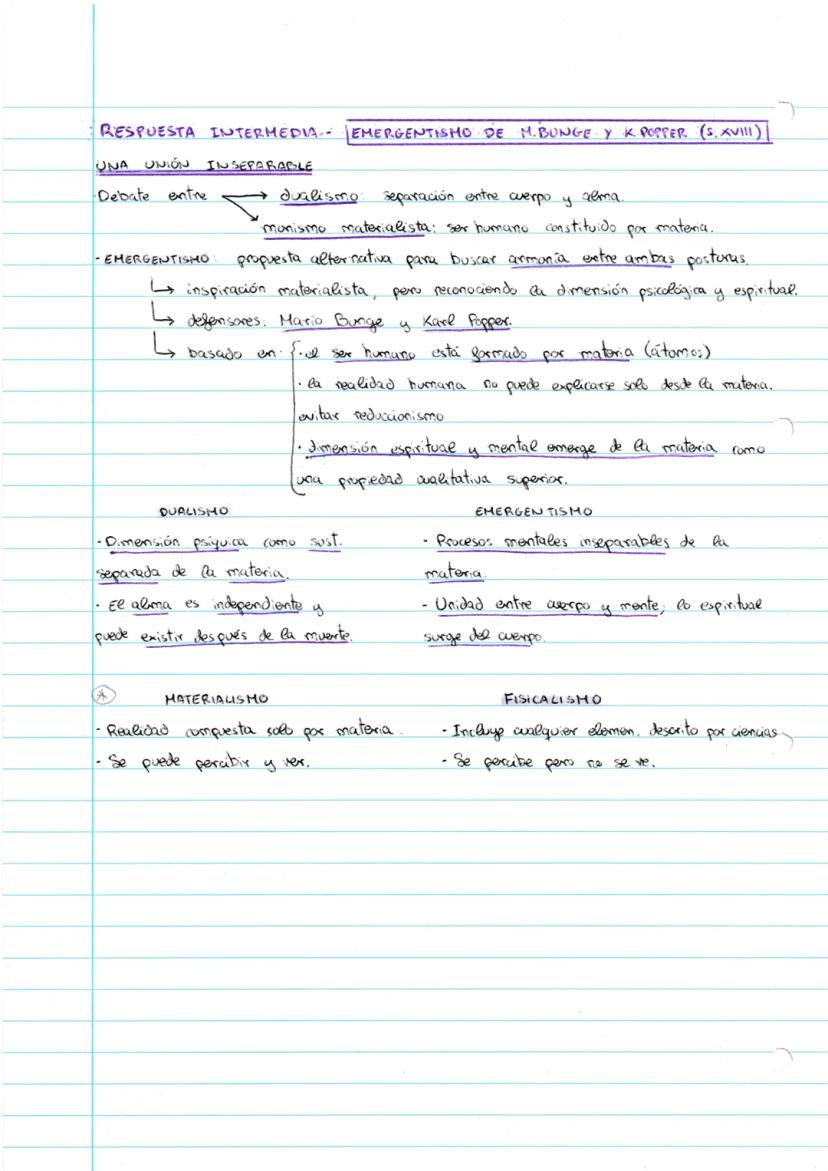 RESPUESTA INTERMEDIA.- EMERGENTISMO DE M.BUNGE Y K.POPPER (S.XVIII)
UNA UNIÓN INSEPARABLE
-Debate entre → dualismo: separación entre cuerpo y alma.
monismo materialista: ser humano constituido por materia.
- EMERGENTISMO: propuesta alternativa para buscar armonía entre ambas posturas.
↳ inspiración materialista, pero reconociendo la dimensión psicológica y espiritual.
↳ defensores: Mario Bunge y Karl Popper.
↳ basado en: · el ser humano está formado por materia (átomos)
· la realidad humana no puede explicarse solo desde la materia.
evitar reduccionismo
· dimensión espiritual y mental emerge de la materia como
una propiedad cualitativa superior.
DUALISMO EMERGENTISMO
- Dimensión psíquica como sust. - Procesos mentales inseparables de la
separada de la materia. materia.
- El alma es independiente y - Unidad entre cuerpo y mente; lo espiritual
puede existir después de la muerte. surge del cuerpo.
* MATERIALISMO FISICALISMO
- Realidad compuesta solo por materia. - Incluye cualquier elemen. descrito por ciencias
- Se puede percibir y ver. - Se percibe pero no se ve.